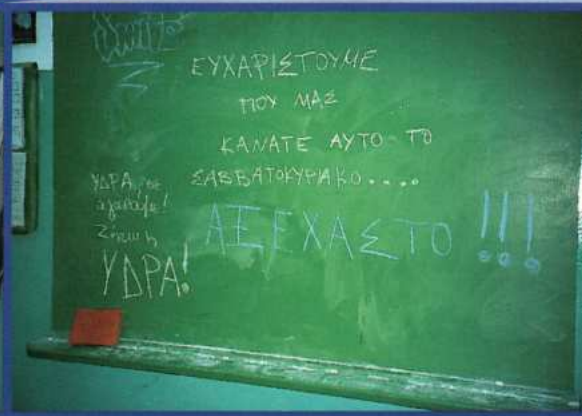 ΕΥΧΑΡΙΣΤΟΥΜΕ
ΠΟΥ ΜΑΣ
ΚΑΝΑΤΕ ΑΥΤΟ ΤΟ
ΣΑΒΒΑΤΟΚΥΡΙΑΚΟ....
ΑΞΕΧΑΣΤΟ!!!
ΥΔΡΑ, σε
αγαπάμε!
Ζήτω η
ΥΔΡΑ!